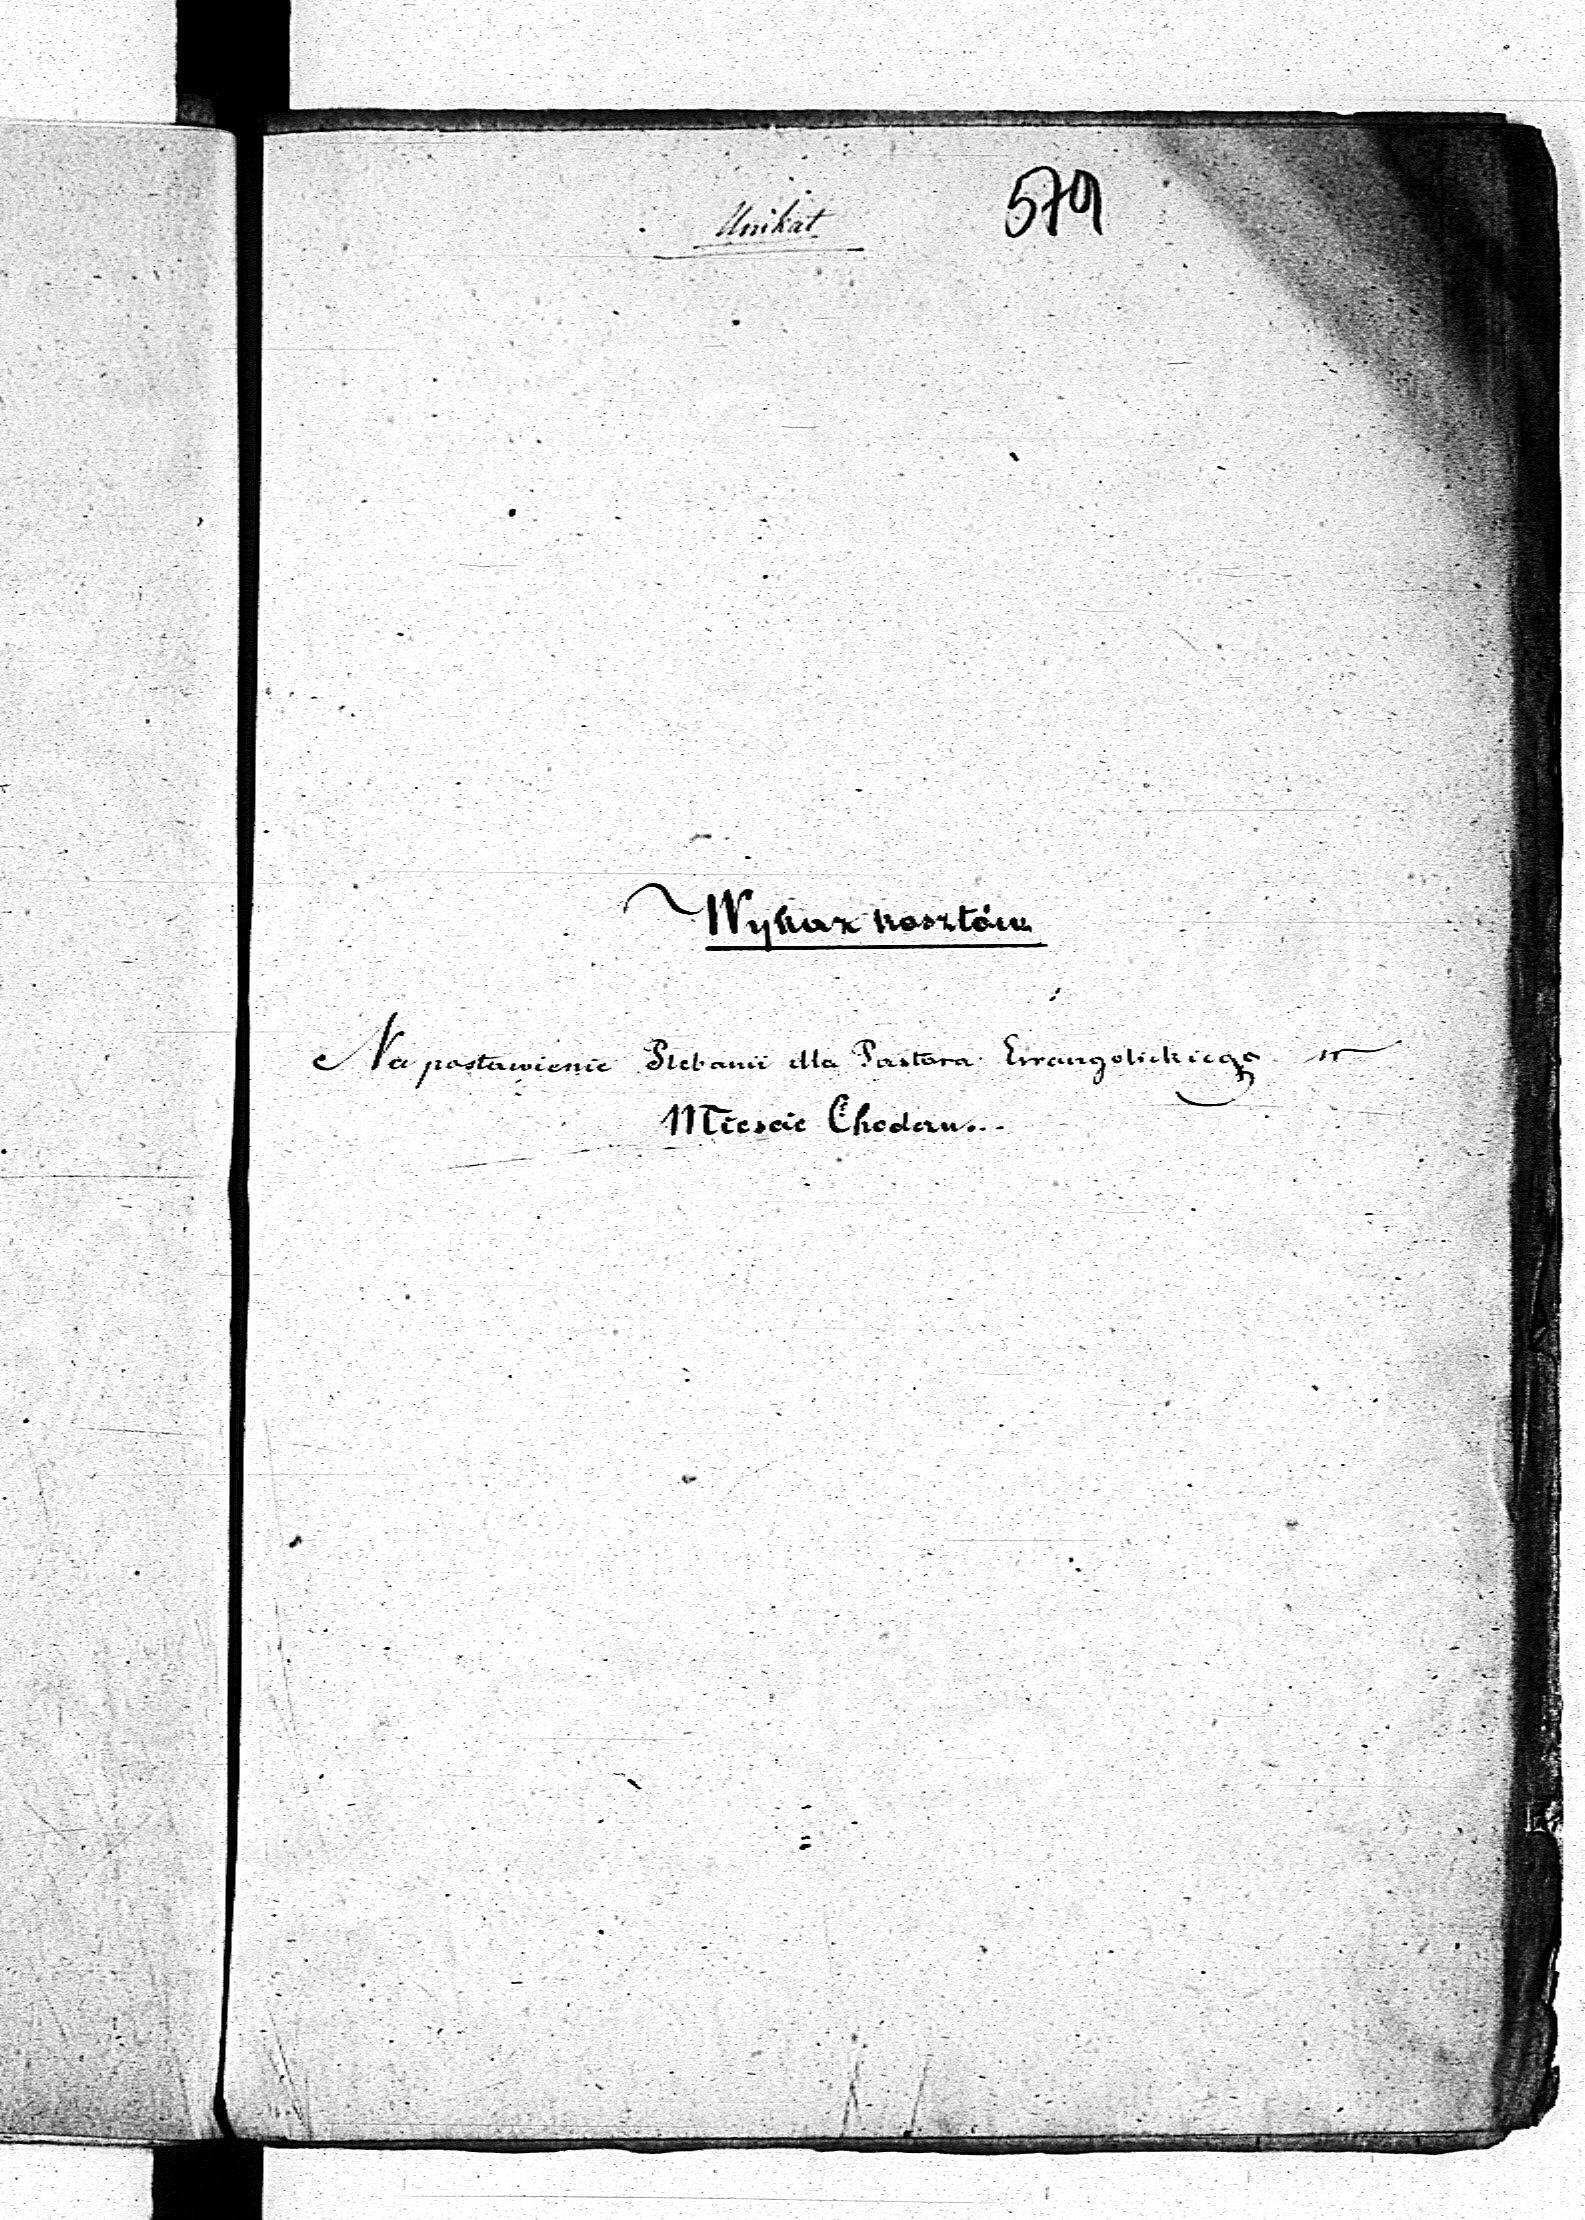 Unikat
579
Wykaz kosztów
Na postawienie Plebanii dla Pastora Ewangelickiego w
Miescie Chodczu